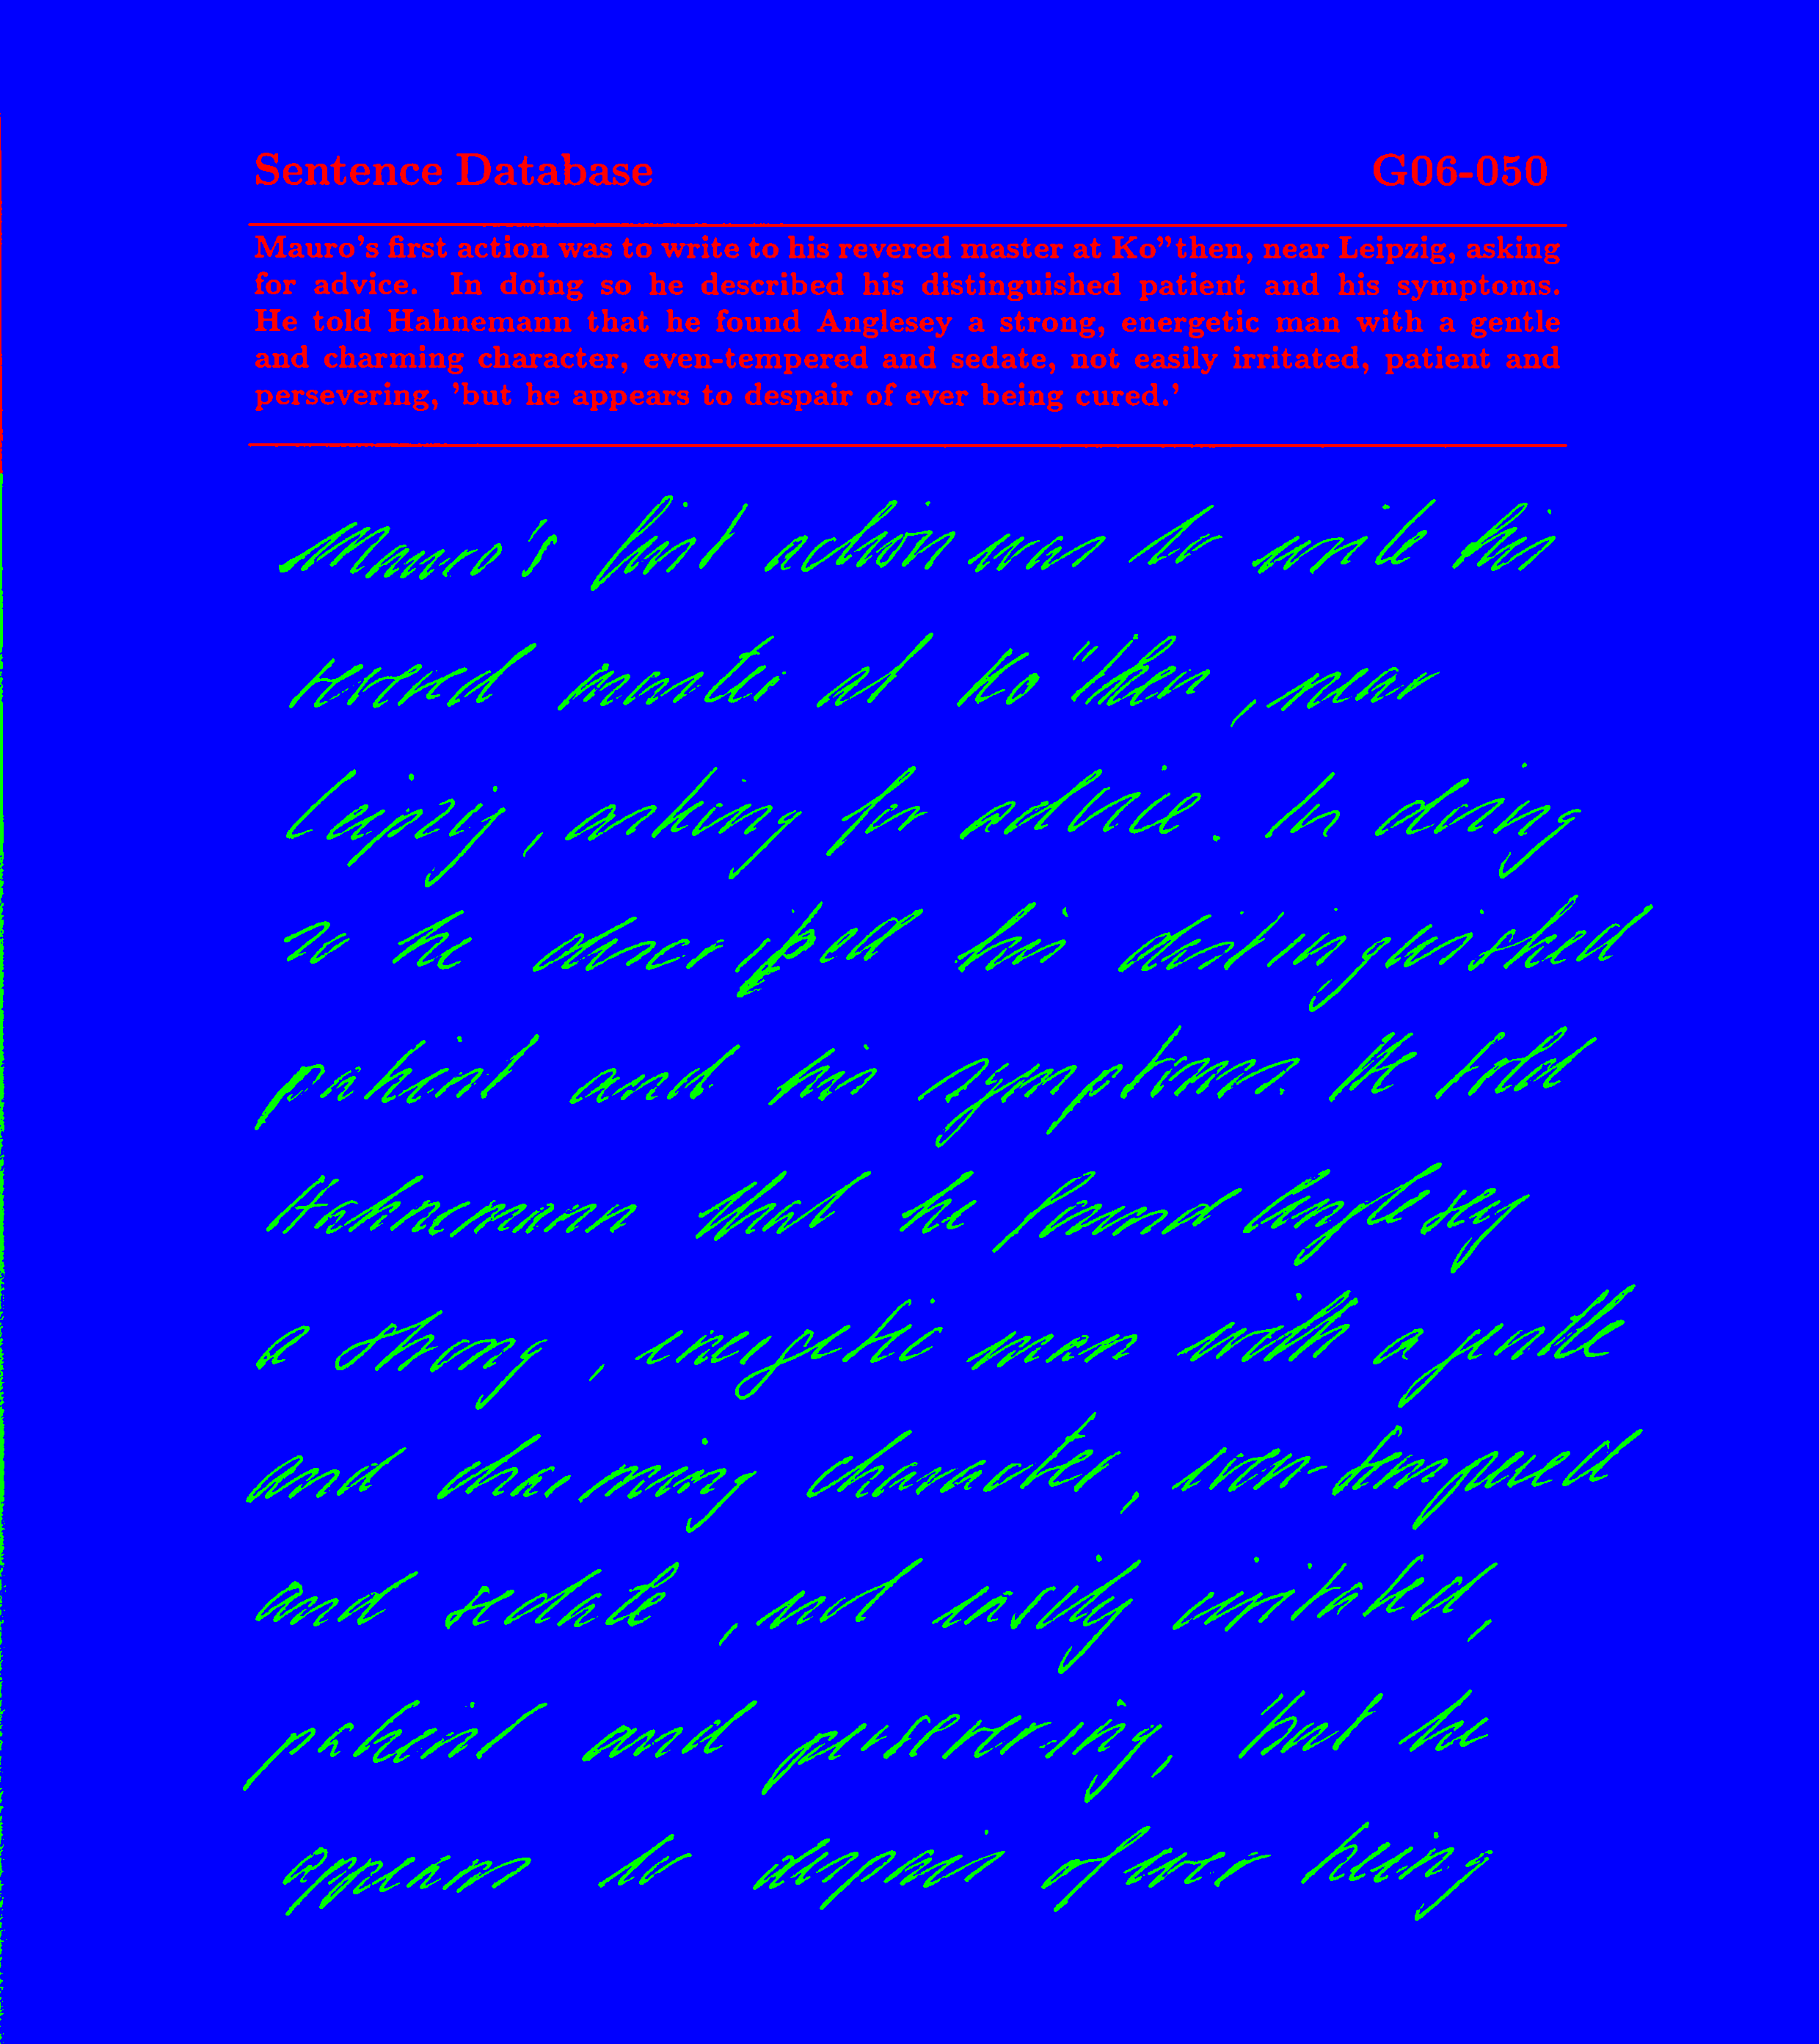 Sentence Database G06-050
Mauro's first action was to write to his revered master at Ko"then, near Leipzig, asking
for advice. In doing so he described his distinguished patient and his symptoms.
He told Hahnemann that he found Anglesey a strong, energetic man with a gentle
and charming character, even-tempered and sedate, not easily irritated, patient and
persevering, 'but he appears to despair of ever being cured.'
Mauro's first action was to write his
revered master at Ko"then, near
Leipzig, asking for advice. In doing
so he described his distinguished
patient and his symptoms. He told
Hahnemann that he found Anglesey
a strong, energetic man with a gentle
and charming character, even-tempered
and sedate, not easily irritated,
patient and persevering, 'but he
appears to despair of ever being